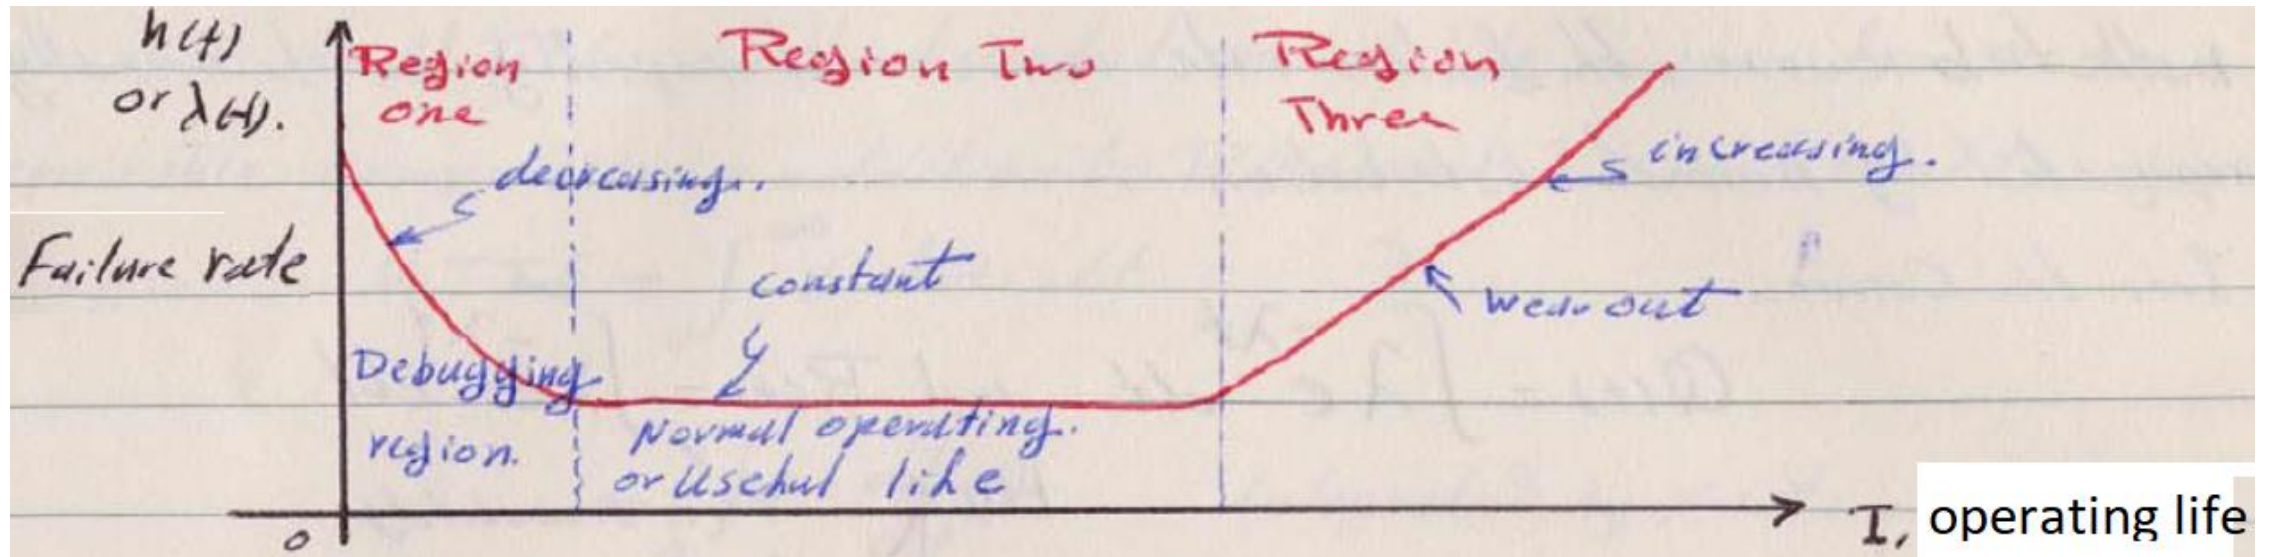 h(t)
or λ(t).
Failure rate
Region
one
Region Two
Region
Three
decreasing.
increasing.
constant
wear out
Debugging
region.
Normal operating.
or Useful life
0
I, operating life